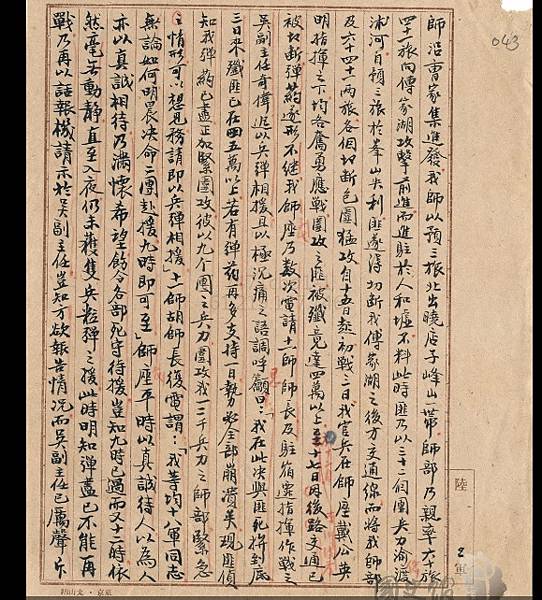 043
師沿曹家集進發我師以預三旅北出曉店子峰山一帶師部乃親率六十旅
四十一旅向傅家湖攻擊前進而進駐於人和墟不料此時匪乃以三十二個團兵力渝渡
沭河自預三旅於峯山失利匪遂得切斷我傅家湖之後方交通線而將我師部
及六十四十一兩旅各個切斷包圍猛攻自十五日起初戰三日我官兵在師座戴公英
明指揮之下均各奮勇應戰圍攻之匪被殲竟達四萬以上至十七日因後路交通已
被切斷彈葯遂形不继我師座乃数次電請十一師師長及駐宿遷指揮作戰之
吳副主任奇偉迅以兵彈相援且以極沉痛之語調呼籲曰:「我在此决與匪死拼到底
三日來殲匪已在四五萬以上若有弹葯再多支持一日勢必全部崩潰矣現匪偵
知我弹葯已盡正加緊圍攻彼以九个團之兵力圍攻我一二千兵力之師部緊急
之情形可以想見務請即以兵彈相援」十一師胡師長復電謂:「我等均十八軍同志
無論如何明晨決命二團赴援九時即可至」師座平時以真誠待人以為人
亦以真誠相待乃滿懷希望飭令各部死守待援豈知九時已過而又十二時依
然毫無動静直至入夜仍未獲隻兵粒彈之援此時明知弹盡已不能再
戰乃再以話報機請示於吳副主任豈知方欲報告情况而吳副主任已厲聲斥
陸